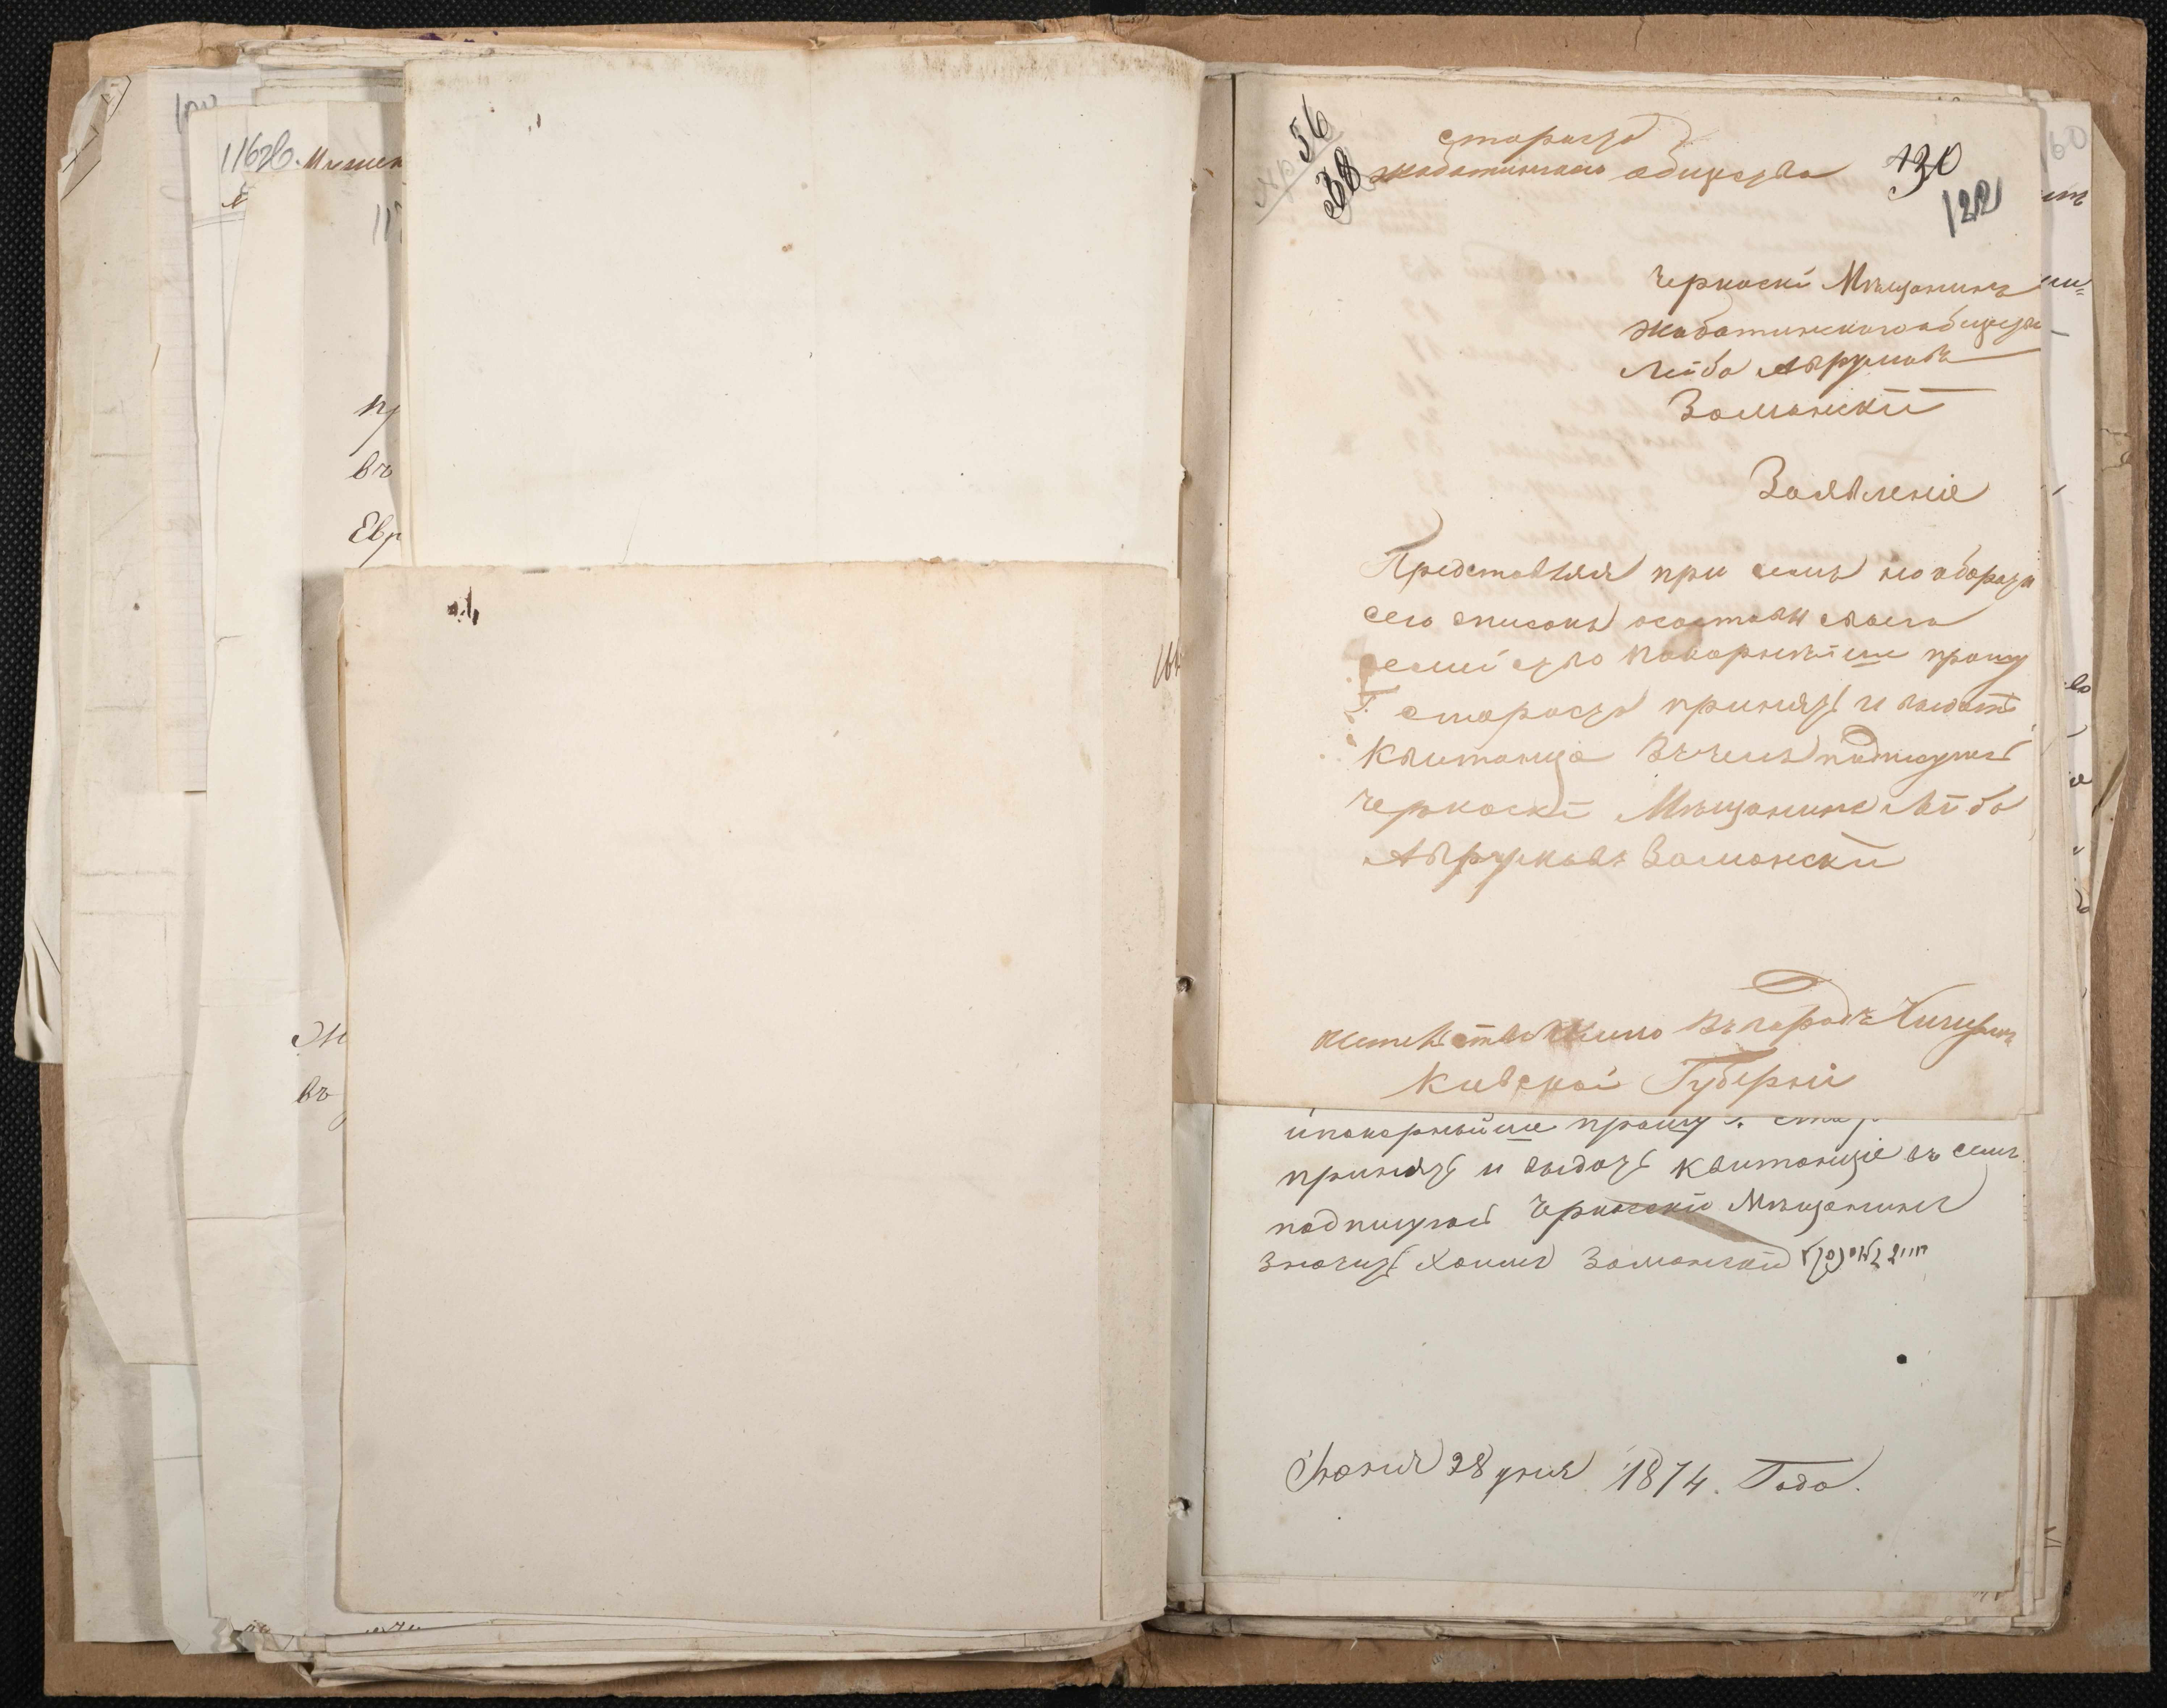 1162б. Мѣщен
117
пр
въ
Евр
въ
56
38
Старосты
Жаботинскаго общества
130
122
Черкаскій Мѣщанинъ
Жаботинскаго общества
Лейба Аврумовъ
Заманскій
Заявленіе
Представляя при семъ на оборотѣ
сего списокъ о составѣ моего
семейство покорнейше прошу
Г. старосты принять и выдать
квитанцію въ чемъ подписуюсь
Черкаскій Мѣщанинъ Лейба
Аврумовъ Заманскій
Жительство имѣю въ городѣ Чигиринѣ
Кіевской Губерніи
и покорнѣйше прошу г. стар
принять и выдать квитанціе въ семъ
подписуюсь Черкаскій Мѣщанинъ
значить Хаимъ Заманскій
Іюня 28 дня 1874. Года.